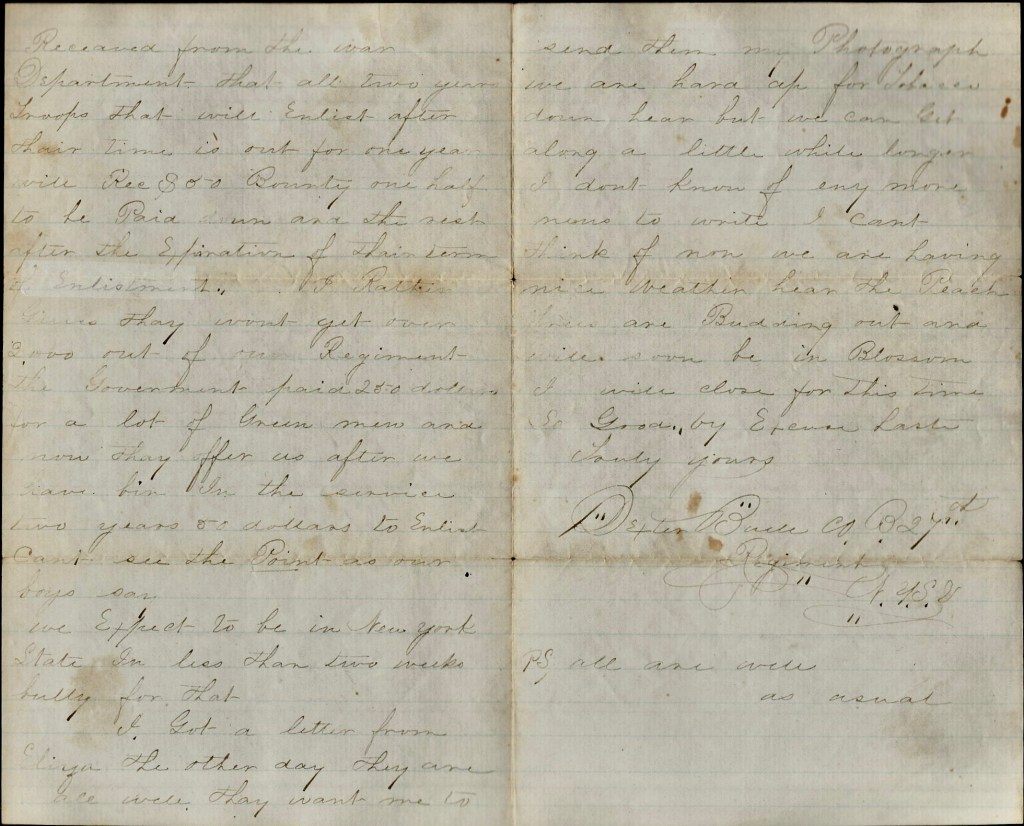 Receaved from the war
Department that all two year
Troops that will Enlist after
thair time is out for one year
will Rec $50 Bounty one half
to be Paid down and the rest
after the Expiration of thair term
Enlistment. I Rather
thay wont get over
3,000 out of our Regiment
the Goverment paid 250 dollars
for a lot of Green men and
now thay offer us after we
have bin In the service
two years 50 dollars to Enlist
Cant see the Point as our
boys say
we Expect to be in New york
State In less than two weeks
bully for that
I Got a letter from
Eliza the other day they are
all well. thay want me to
send them my Photograph
we are hard up for Tobacco
down hear but we can Get
along a little while longer
I dont know of eny more
news to write I cant
think of non we are having
nice weather hear the Peach
trees are Budding out and
will soon be in Blossom
I will close for this time
So Good,, by Excuse haste
Truly yours
Dexter Buell Co B 27th
Regiment
N.Y.S.V
PS all are well
as asual